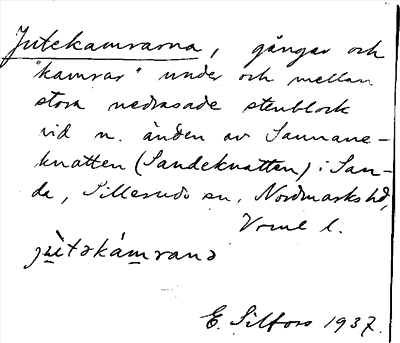 Jutekamrarna, gångar och
"kamrar" under och mellan
stora nedrasade stenblock
vid n. änden av Sannane-
knatten (Sandeknatten) i San-
da, Silleruds sn, Nordmarks hd,
Vrml l.
jùtəkámranə
E. Silfors 1937.